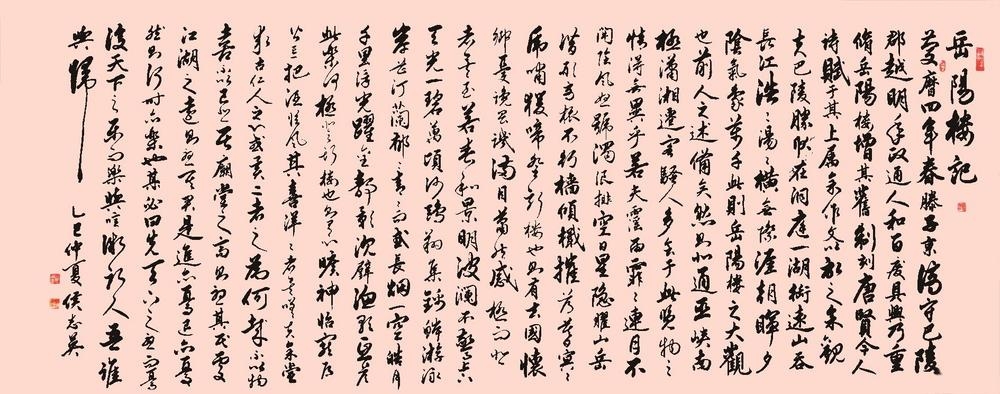 岳陽樓記
慶曆四年春滕子京謫守巴陵
郡越明年政通人和百废具興乃重
脩岳陽樓增其舊制刻唐賢今人
詩賦于其上属余作文以記之余觀
夫巴陵勝狀在洞庭一湖銜遠山吞
長江浩浩湯湯橫無際涯朝暉夕
陰氣象萬千此則岳陽樓之大觀
也前人之述備矣然則北通巫峽南
極瀟湘遷客騷人多會于此覽物之
情得無異乎若夫霪雨霏霏連月不
開陰風怒號濁浪排空日星隱耀山岳
潛形商旅不行檣傾檝摧薄暮冥冥
虎嘯猨啼登斯樓也則有去國懷
鄉憂讒畏譏滿目蕭然感極而悲
者矣至若春和景明波瀾不驚上下
天光一碧萬頃沙鷗翔集錦鱗游泳
岸芷汀蘭郁郁青青而或長烟一空皓月
千里浮光躍金靜影沉璧漁歌互答
此樂何極登斯樓也則有心曠神怡寵辱
皆忘把酒臨風其喜洋洋者矣嗟夫余嘗
求古仁人之心或異二者之為何哉不以物
喜不以己悲居廟堂之高則憂其民處
江湖之遠則憂其君是進亦憂退亦憂
然則何時而樂也其必曰先天下之憂而憂
後天下之樂而樂與噫微斯人吾誰
與歸
乙巳仲夏侯志英